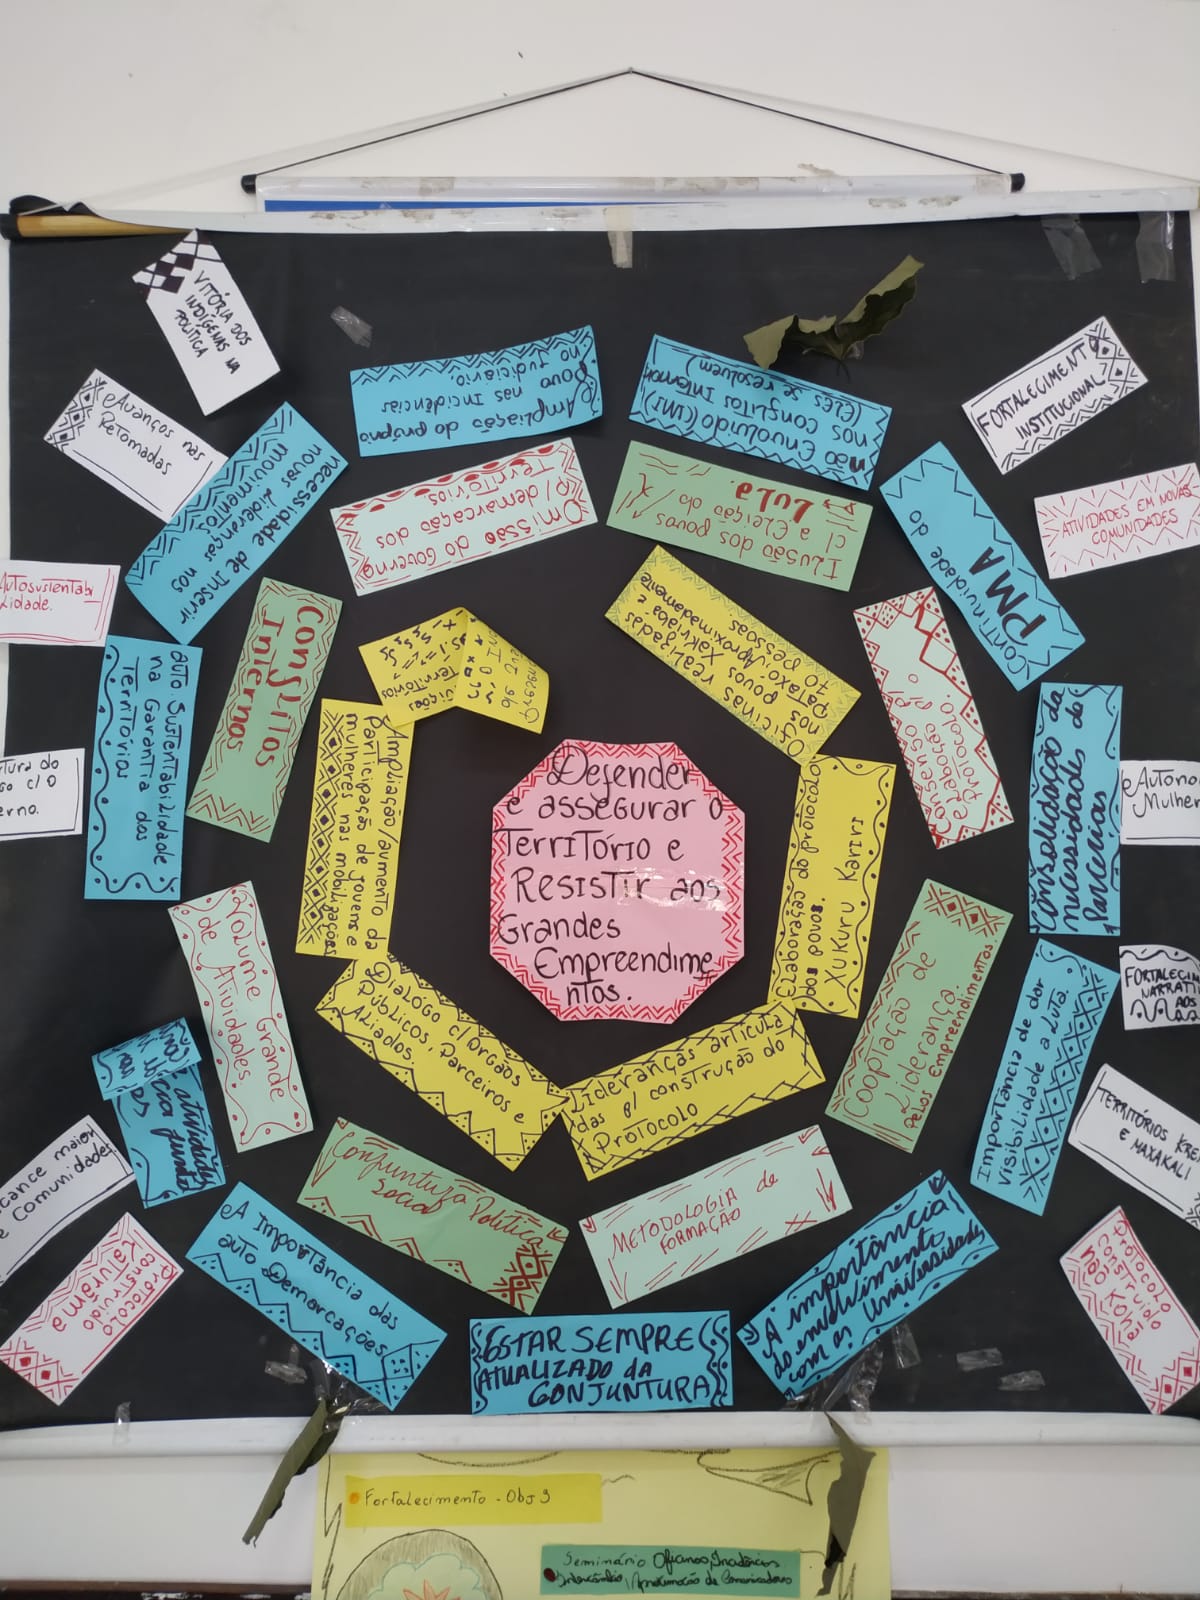 VITÓRIA DOS
INDÍGENAS NA
POLÍTICA
Avanços nas
Retomadas
necessidade de Inserir
novas lideranças nos
movimentos
Ampliação do próprio
povo nas Incidências
no judiciário.
não Envolvido (IMI)
nos conflitos Internos
(Eles se resolvem)
FORTALECIMENTO
INSTITUCIONAL
ATIVIDADES EM NOVAS
COMUNIDADES
Omissão do Governo
p/ demarcação dos
Territórios
Ilusão dos povos
c/ a Eleição do
Lula.
Continuidade do
PMA
Autosustentabi
lidade.
auto. Sustentabilidade
na Garantia dos
Territórios
Conflitos
Internos
Territórios
Oficinas realizadas
nos povos
Pataxó, Xakriabá e
Aproximadamente
70 pessoas
Consenso p/ a
elaboração do
Protocolo.
Consolidação da
necessidade de
Parcerias
Mulher
Ampliação/aumento da
Participação de jovens e
mulheres nas mobilizações
Defender
e assegurar o
Território e
Resistir aos
Grandes
Empreendime
ntos.
Elaboração do protocolo
dos povos.
XUKURU KARIRI
Volume Grande
de Atividades.
Dialogo c/ orgãos
Públicos, Parceiros e
Aliados.
Lideranças articula
das p/ construção do
Protocolo
Cooptação de
Liderança
pelos Empreendimentos.
Importância de dar
visibilidade a Luta.
TERRITÓRIOS
E MAXAKALI
atividades
maior
Comunidades
Protocolo
construído
Kaiurém
A Importância das
auto Demarcações
Conjuntura Política
Social
METODOLOGIA de
FORMAÇÃO
A importância
do envolvimento
com as Universidades
ESTAR SEMPRE
ATUALIZADO DA
CONJUNTURA
Protocolo
Construído
Fortalecimento - Obj 3
Seminário Oficinas, Incidências
Intercâmbio,